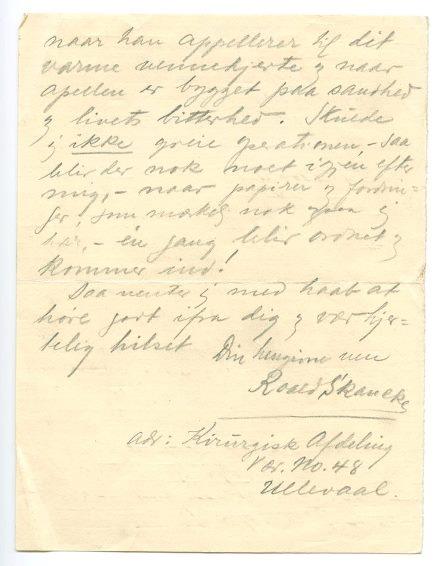 naar han appellerer til dit
varme vennehjerte og naar
apellen er bygget paa sandhed
og livets bitterhed. Skulde
jeg ikke greie operationen, - saa
blir der nok noet igjen efter
mig, - naar papirer og fordrin-
ger, som mærkelig nok ogsaa jeg
har, - én gang blir ordnet og
kommer ind!
Saa venter jeg med haab at
høre fort ifra dig og vær hjer-
telig hilset
Din hengivne ven
Roald Skancke
adr: Kirurgisk Afdeling
Vær. No. 48
Ullevaal.